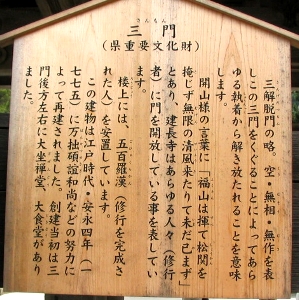 さんもん
三門
(県重要文化財)
三解脱門の略。空・無相・無作を表
しこの三門をくぐることによってあら
ゆる執着から解き放たれることを意味
します。
開山様の言葉に「福山は揮て松関を
掩じず無限の清風来たりて未だ已まず」
とあり、建長寺はあらゆる人々(修行
者)に門を開放している事を表してい
ます。
楼上には、五百羅漢(修行を完成さ
れた人)を安置しています。
この建物は江戸時代・安永四年(一
七七五)に万拙碩誼和尚などの努力に
よって再建されました。創建当初は三
門後方左右に大坐禅堂、大食堂があり
ました。